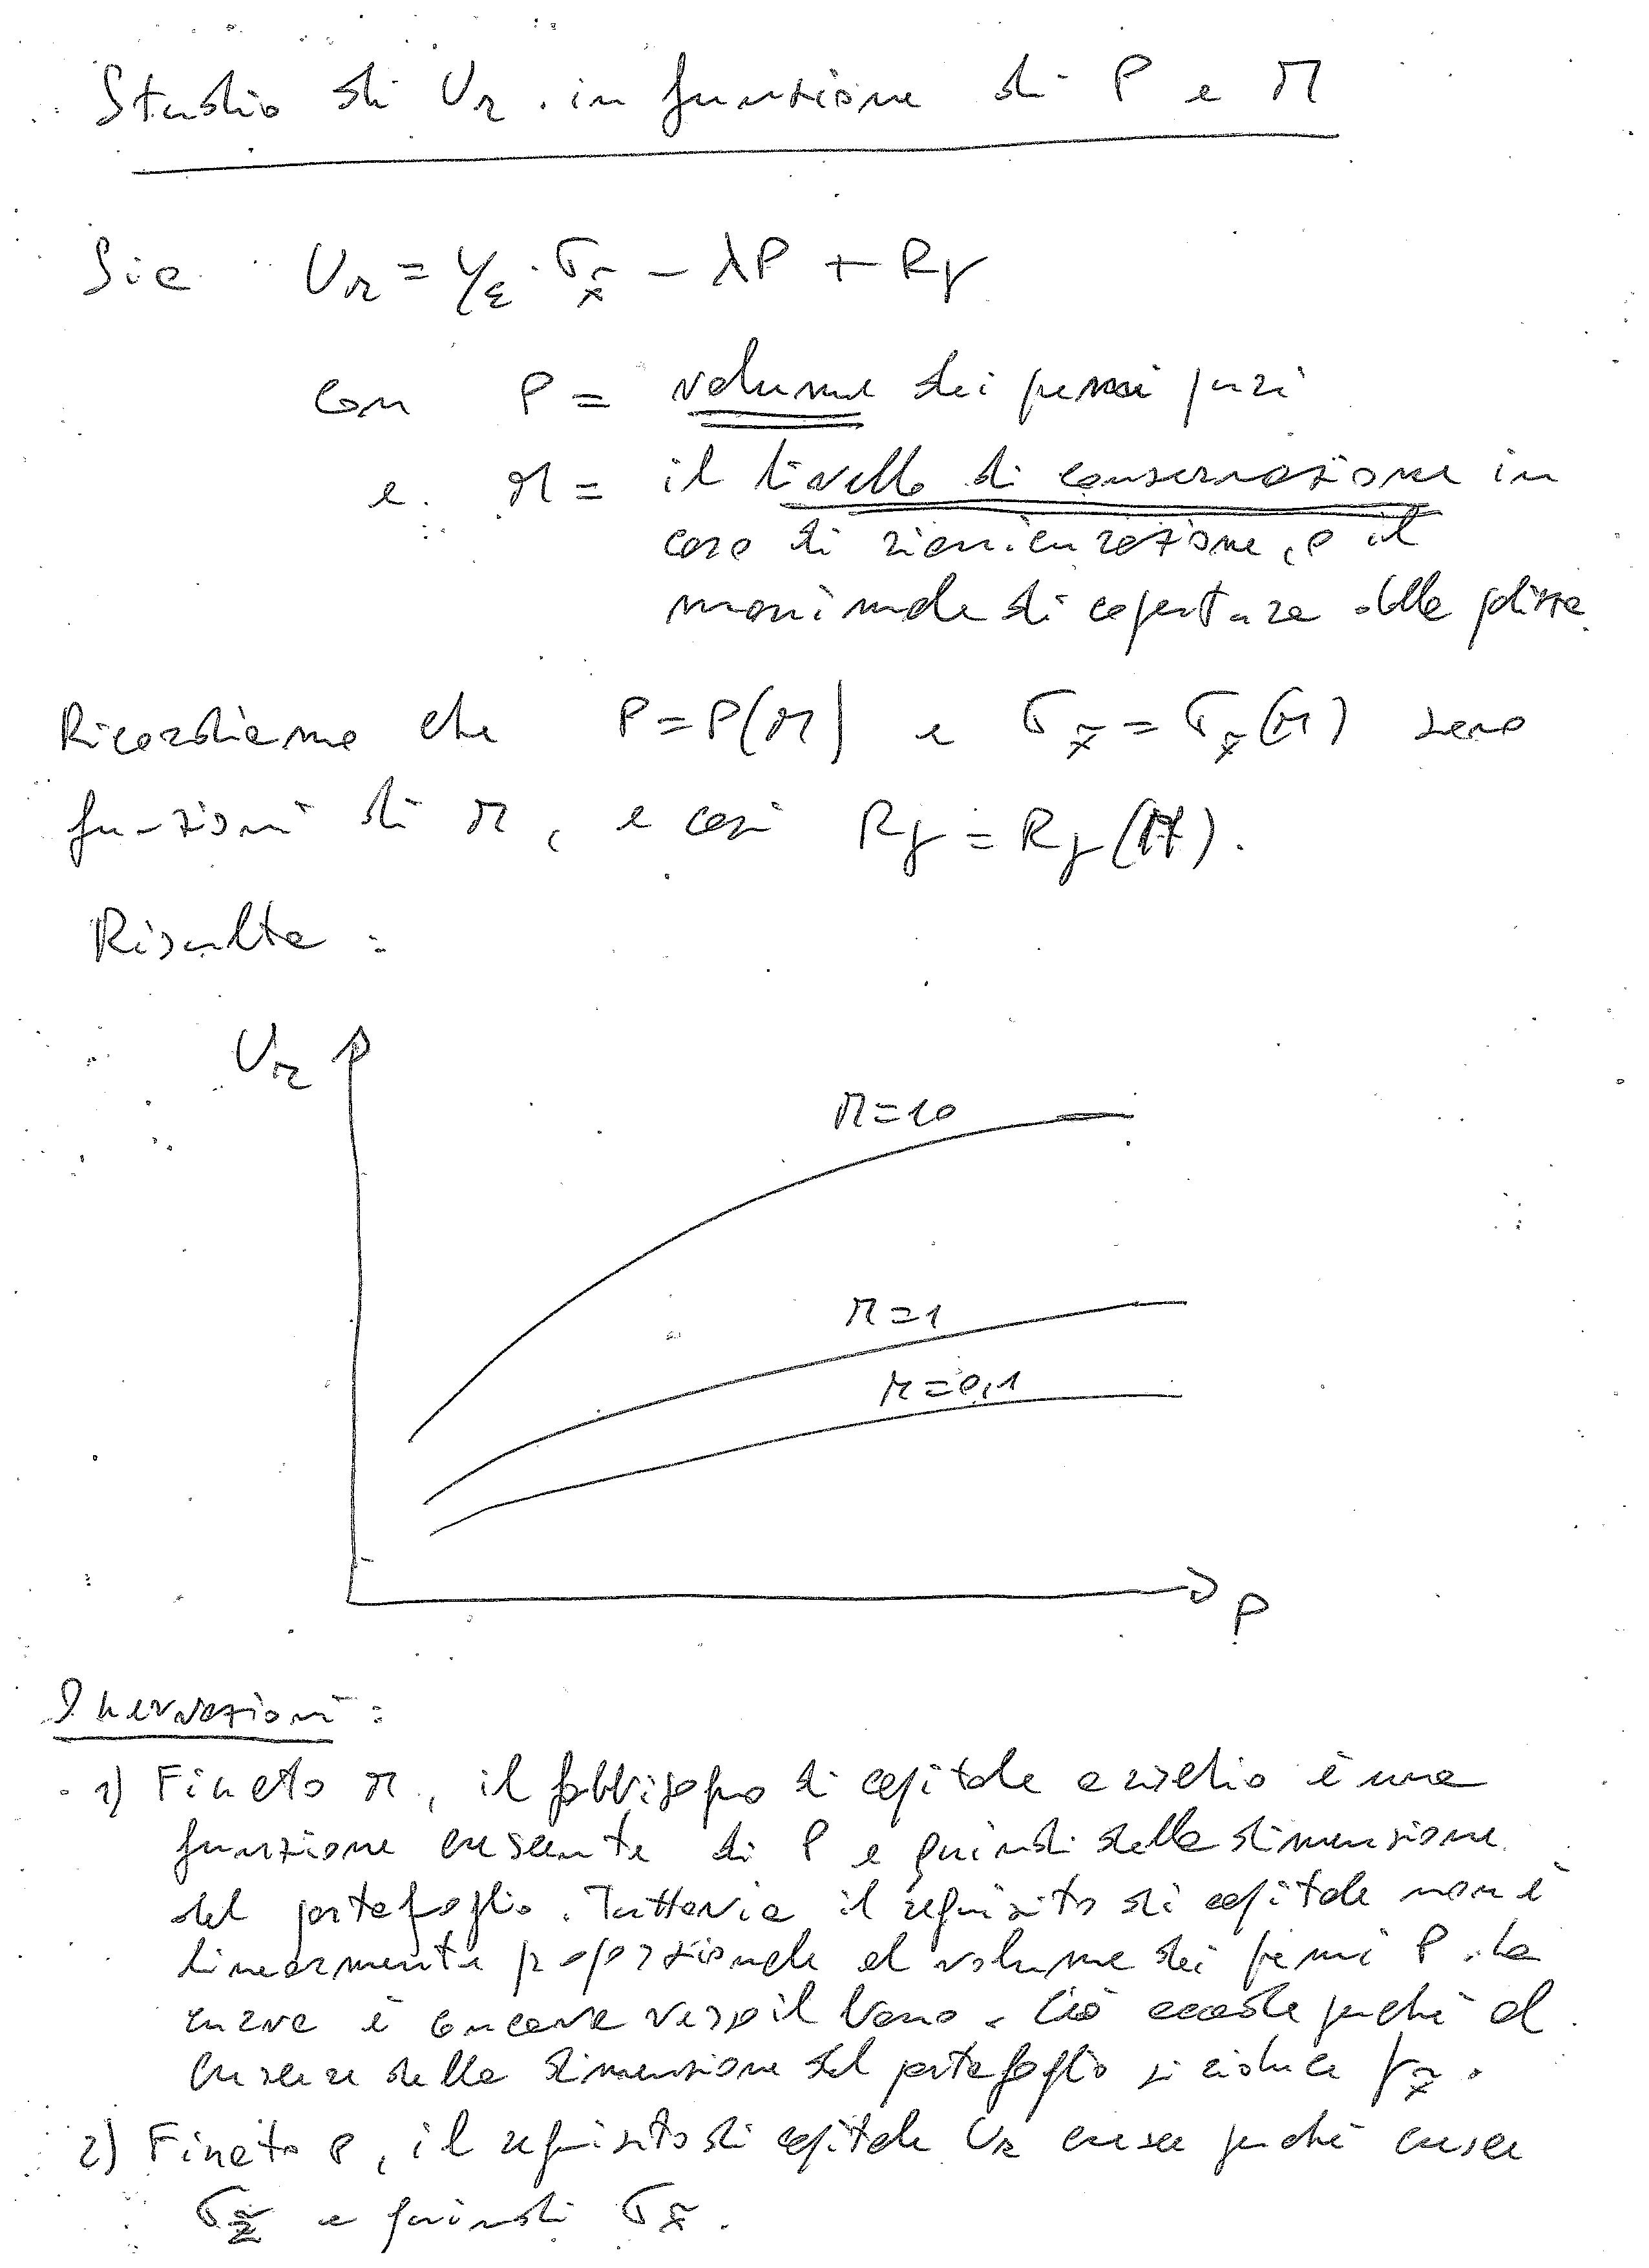 Studio di Ur in funzione di P e M
Sia Ur = yε · σx̃ − λP + Rγ
con P = volume dei premi puri
e M = il livello di conservazione in
caso di riassicurazione, o il
massimale di copertura della polizza
Ricordiamo che P = P(M) e σx̃ = σx̃(M) sono
funzioni di M, e così Rγ = Rγ(M).
Risulta:
Ur
M=10
M=1
M=0,1
P
Osservazioni:
1) Fissato M, il fabbisogno di capitale a rischio è una
funzione crescente di P e quindi della dimensione
del portafoglio. Tuttavia il requisito di capitale non è
linearmente proporzionale al volume dei premi P. La
curva è concava verso il basso. Ciò accade perché al
crescere della dimensione del portafoglio si riduce γx̃.
2) Fissato P, il requisito di capitale Ur cresce perché cresce
σz̃ e quindi σx̃.